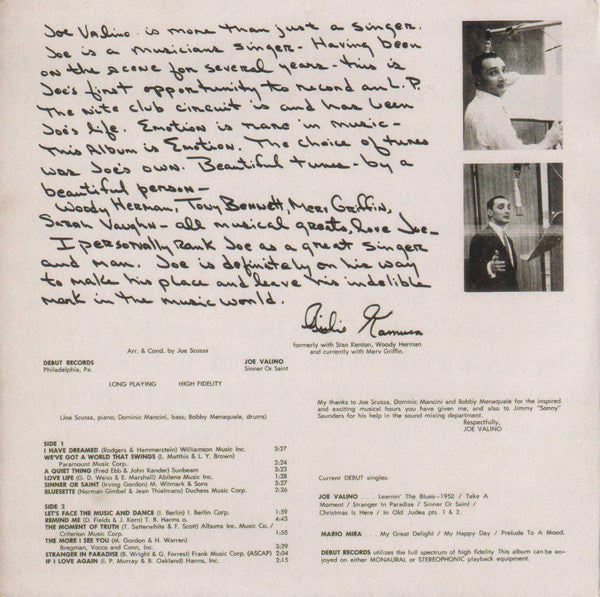 Joe Valino is more than just a singer.
Joe is a musicians singer - Having been
on the scene for several years - this is
Joe's first opportunity to record an L.P.
The nite club circuit is and has been
Joe's life. Emotion is rare in music -
This Album is Emotion. The choice of tunes
was Joe's own. Beautiful tunes - by a
beautiful person -
Woody Herman, Tony Bennett, Merv Griffin,
Sarah Vaughn - all musical greats, love Joe -
I personally Rank Joe as a great singer
and man. Joe is definitely on his way
to make his place and leave his indelible
mark in the music world.
formerly with Stan Kenton, Woody Herman
and currently with Merv Griffin.
Arr. & Cond. by Joe Scussa
DEBUT RECORDS
Philadelphia, Pa.
JOE VALINO
Sinner Or Saint
LONG PLAYING HIGH FIDELITY
(Joe Scussa, piano; Dominic Mancini, bass; Bobby Menaquale, drums)
SIDE 1
I HAVE DREAMED (Rodgers & Hammerstein) Williamson Music Inc. 3:27
WE'VE GOT A WORLD THAT SWINGS (L. Matthis & L. Y. Brown)
Paramount Music Corp. 2:24
A QUIET THING (Fred Ebb & John Kander) Sunbeam 3:23
LOVE LIFE (G. D. Weiss & E. Marshall) Abilene Music Inc. 1:28
SINNER OR SAINT (Irving Gordon) M. Witmark & Sons 3:27
BLUESETTE (Norman Gimbel & Jean Thielmans) Duchess Music Corp. 2:36
SIDE 2
LET'S FACE THE MUSIC AND DANCE (I. Berlin) I. Berlin Corp. 1:59
REMIND ME (D. Fields & J. Kern) T. B. Harms o. 4:43
THE MOMENT OF TRUTH (T. Satterwhite & F. Scott) Albums Inc. Music Co. /
Criterion Music Corp. 1:55
THE MORE I SEE YOU (M. Gordon & H. Warren)
Bregman, Vocco and Conn, Inc. 3:29
STRANGER IN PARADISE (B. Wright & G. Forrest) Frank Music Corp. (ASCAP) 2:04
IF I LOVE AGAIN (I. P. Murray & B. Oakland) Harms, Inc. 2:15
My thanks to Joe Scussa, Dominic Mancini and Bobby Menaquale for the inspired
and exciting musical hours you have given me, and also to Jimmy "Sonny"
Saunders for his help in the sound mixing department.
Respectfully,
JOE VALINO
Current DEBUT singles:
JOE VALINO . . . Learnin' The Blues—1952 / Take A
Moment / Stranger In Paradise / Sinner Or Saint /
Christmas Is Here / In Old Judea pts. 1 & 2.
MARIO MIRA . . . My Great Delight / My Happy Day / Prelude To A Mood.
DEBUT RECORDS utilizes the full spectrum of high fidelity. This album can be en-
joyed on either MONAURAL or STEREOPHONIC playback equipment.